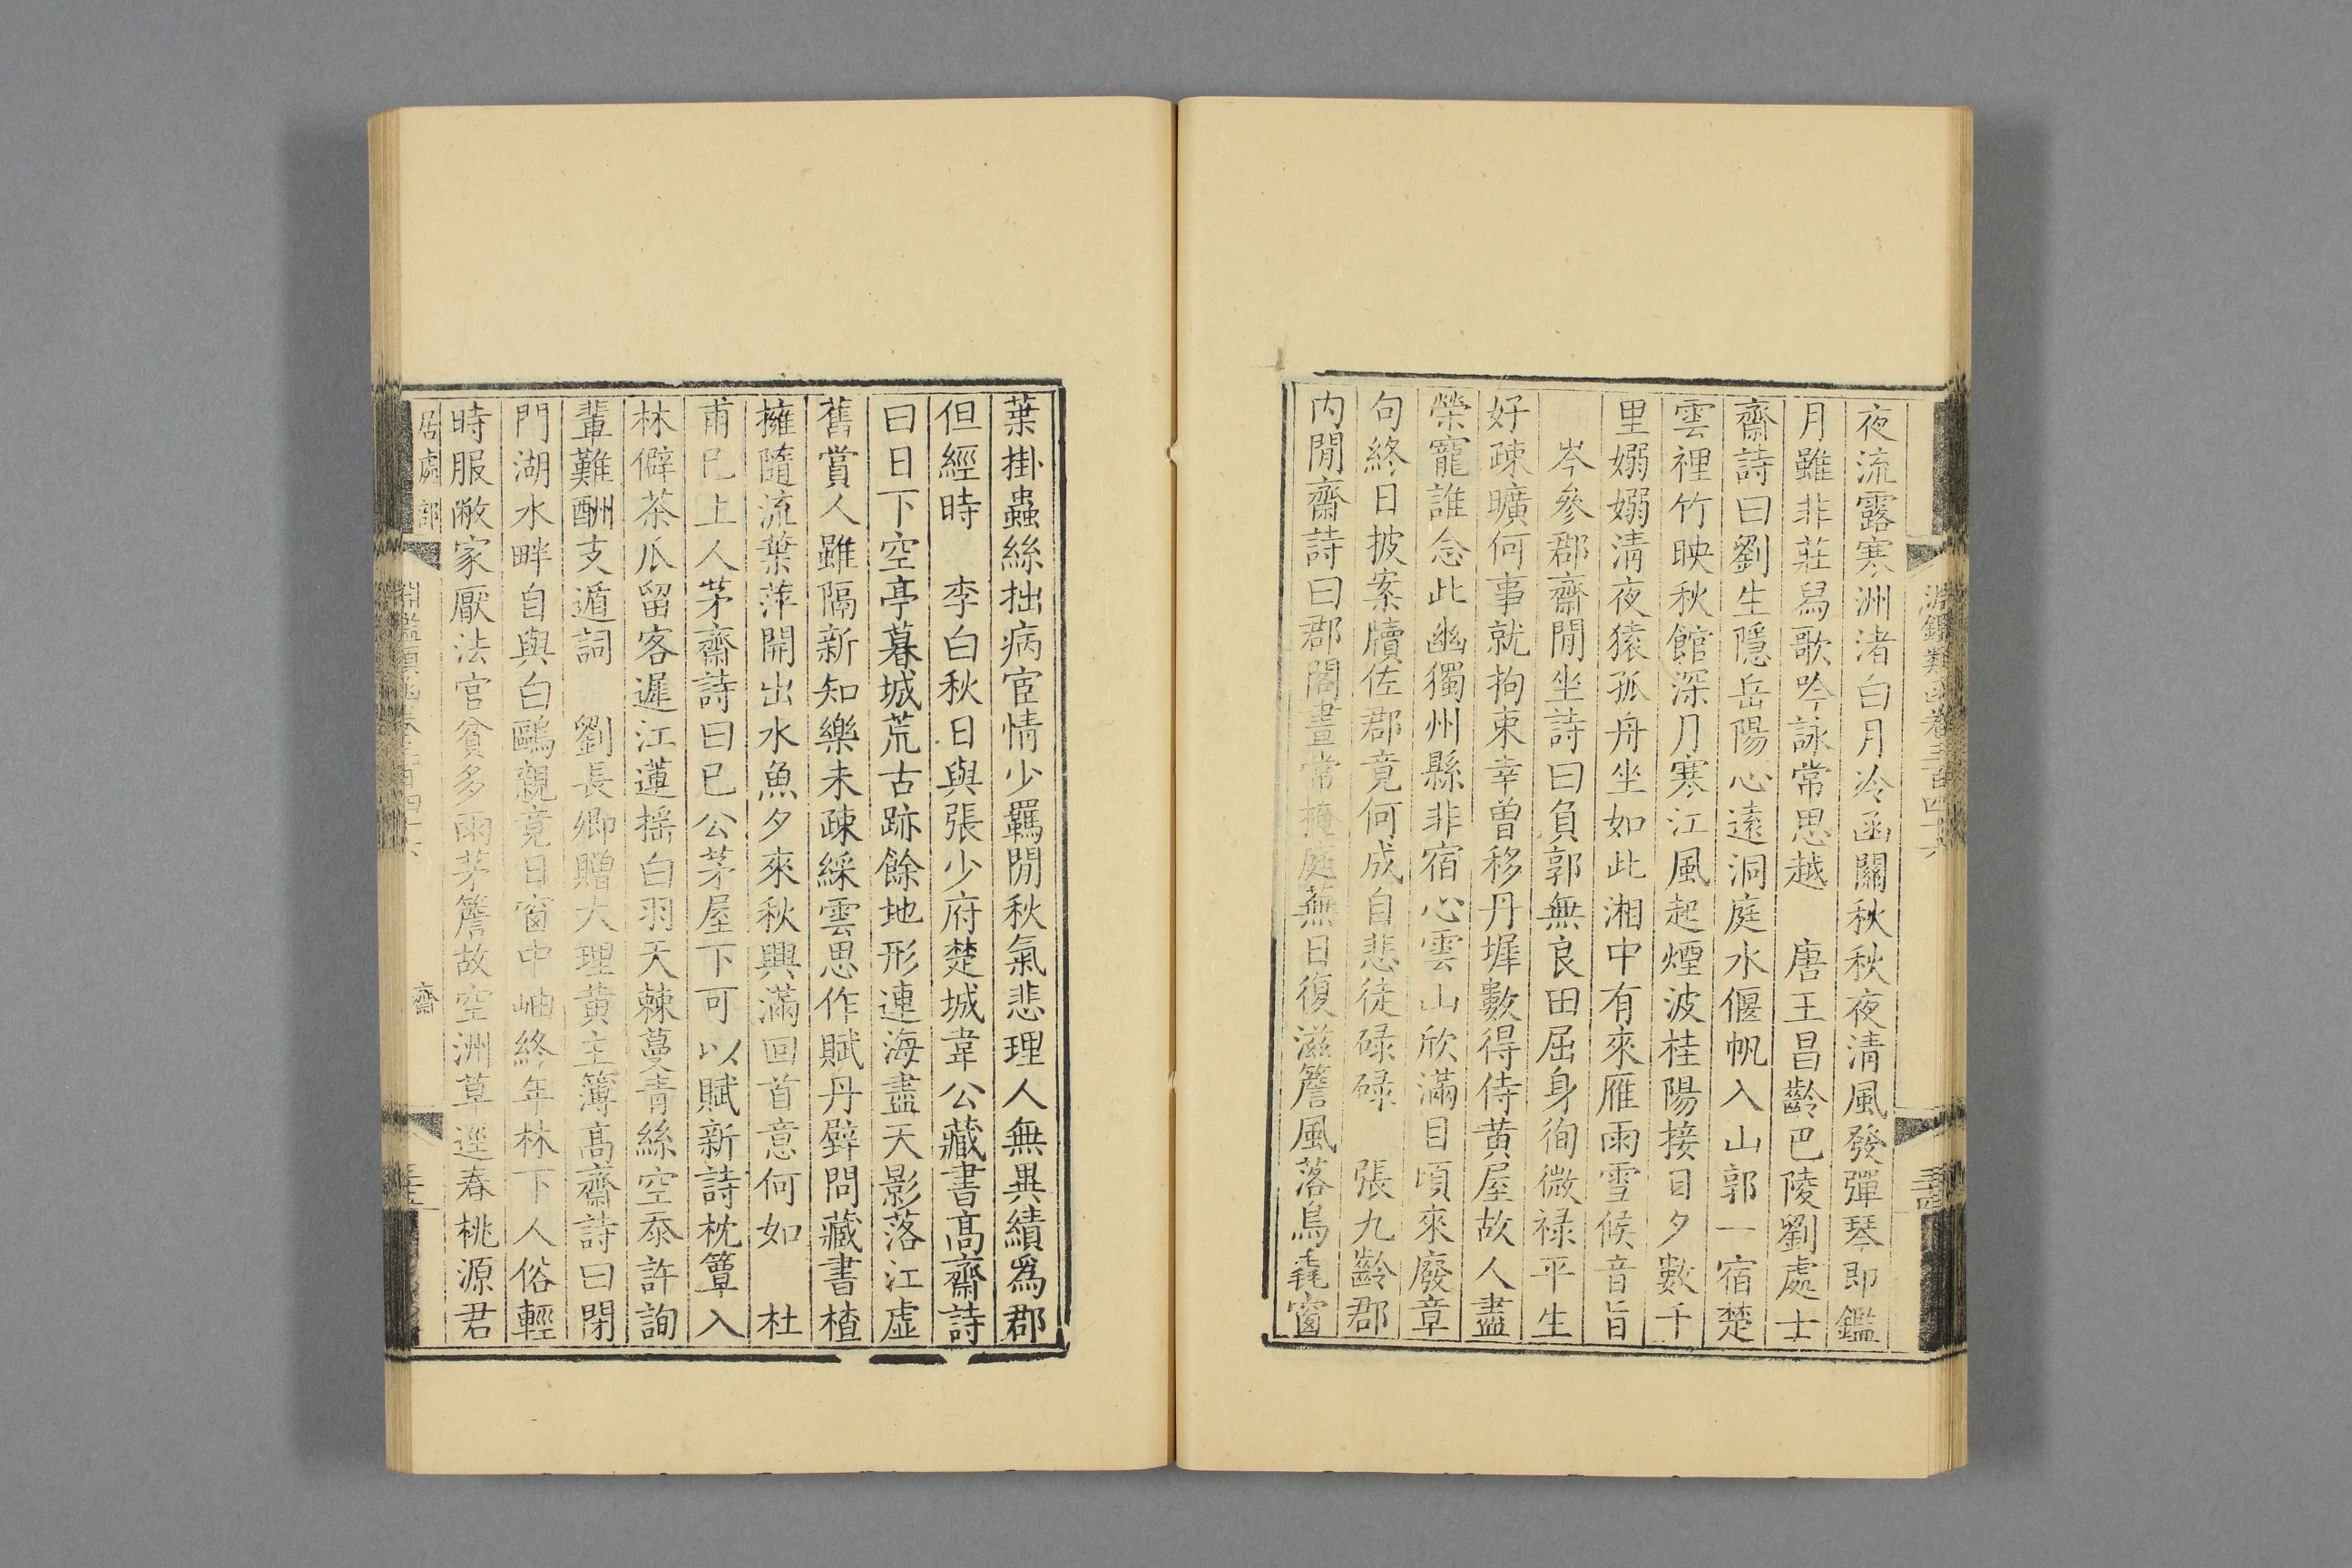 夜流露寒洲渚白月冷函關秋秋夜清風發彈琴即鑑
月雖非莊舄歌吟詠常思越　唐王昌齡巴陵劉處士
齋詩曰劉生隱岳陽心遠洞庭水偃帆入山郭一宿楚
雲裡竹映秋館深月寒江風起煙波桂陽接日夕數千
里嫋嫋清夜猿孤舟坐如此湘中有來雁雨雪候音旨
岑參郡齋閒坐詩曰負郭無良田屈身徇微祿平生
好疎曠何事就拘束幸曾移丹墀數得侍黃屋故人盡
榮寵誰念此幽獨州縣非宿心雲山欣滿目頃來廢章
句終日披案牘佐郡竟何成自悲徒碌碌　張九齡郡
內閒齋詩曰郡閣晝常掩庭蕪日復滋簷風落鳥毳窗
葉掛蟲絲拙病宦情少羈閒秋氣悲理人無異績爲郡
但經時　李白秋日與張少府楚城韋公藏書高齋詩
曰日下空亭暮城荒古跡餘地形連海盡天影落江虛
舊賞人雖隔新知樂未疎綵雲思作賦丹壁問藏書楂
擁隨流葉萍開出水魚夕來秋興滿回首意何如　杜
甫巳上人茅齋詩曰巳公茅屋下可以賦新詩枕簟入
林僻茶瓜留客遲江蓮搖白羽天棘蔓青絲空忝許詢
輩難酬支遁詞　劉長卿贈大理黃主簿高齋詩曰閉
門湖水畔自與白鷗親竟日窗中岫終年林下人俗輕
時服敝家厭法官貧多雨茅簷故空洲草逕春桃源君
居處部
齋